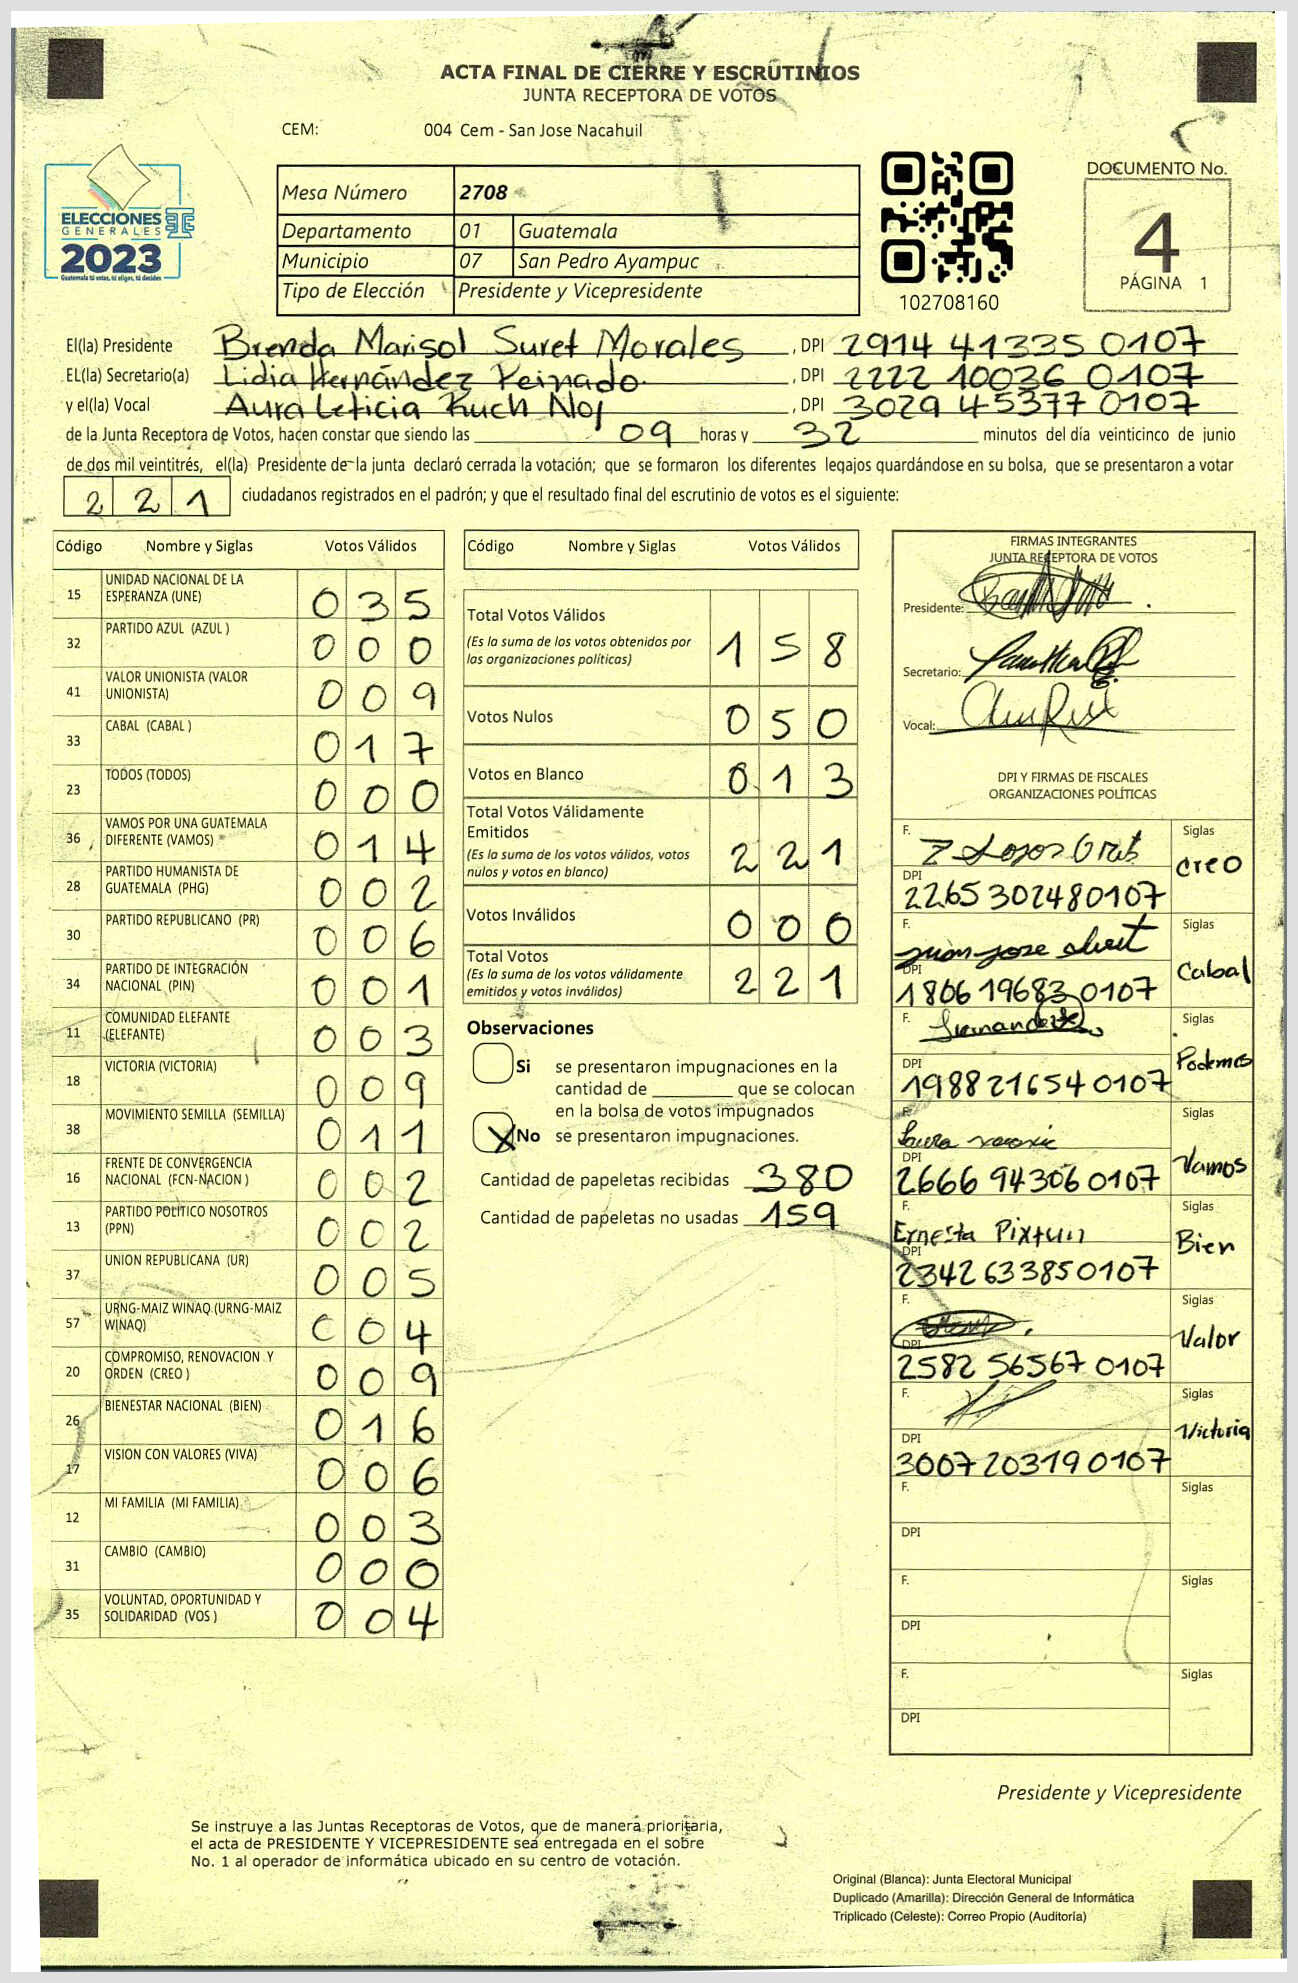 ACTA FINAL DE CIERRE Y ESCRUTINIOS
JUNTA RECEPTORA DE VOTOS
CEM: 004 Cem - San Jose Nacahuil
ELECCIONES
GENERALES
2023
Guatemala tú votas, tú eliges, tú decides
Mesa Número 2708
Departamento 01 Guatemala
Municipio 07 San Pedro Ayampuc
Tipo de Elección Presidente y Vicepresidente
102708160
DOCUMENTO No.
4
PÁGINA 1
El(la) Presidente Brenda Marisol Suret Morales , DPI 2914 41335 0107
EL(la) Secretario(a) Lidia Hernández Peinado. , DPI 2222 10036 0107
y el(la) Vocal Aura Leticia Kuch Noj , DPI 3029 45377 0107
de la Junta Receptora de Votos, hacen constar que siendo las 09 horas y 32 minutos del día veinticinco de junio
de dos mil veintitrés, el(la) Presidente de la junta declaró cerrada la votación; que se formaron los diferentes legajos guardándose en su bolsa, que se presentaron a votar
221 ciudadanos registrados en el padrón; y que el resultado final del escrutinio de votos es el siguiente:
Código Nombre y Siglas Votos Válidos
15 UNIDAD NACIONAL DE LA
ESPERANZA (UNE) 035
32 PARTIDO AZUL (AZUL ) 000
41 VALOR UNIONISTA (VALOR
UNIONISTA) 009
33 CABAL (CABAL ) 017
23 TODOS (TODOS) 000
36 VAMOS POR UNA GUATEMALA
DIFERENTE (VAMOS) 014
28 PARTIDO HUMANISTA DE
GUATEMALA (PHG) 002
30 PARTIDO REPUBLICANO (PR) 006
34 PARTIDO DE INTEGRACIÓN
NACIONAL (PIN) 001
11 COMUNIDAD ELEFANTE
(ELEFANTE) 003
18 VICTORIA (VICTORIA) 009
38 MOVIMIENTO SEMILLA (SEMILLA) 011
16 FRENTE DE CONVERGENCIA
NACIONAL (FCN-NACION ) 002
13 PARTIDO POLITICO NOSOTROS
(PPN) 002
37 UNION REPUBLICANA (UR) 005
57 URNG-MAIZ WINAQ (URNG-MAIZ
WINAQ) 004
20 COMPROMISO, RENOVACION Y
ORDEN (CREO ) 009
26 BIENESTAR NACIONAL (BIEN) 016
17 VISION CON VALORES (VIVA) 006
12 MI FAMILIA (MI FAMILIA) 003
31 CAMBIO (CAMBIO) 000
35 VOLUNTAD, OPORTUNIDAD Y
SOLIDARIDAD (VOS ) 004
Código Nombre y Siglas Votos Válidos
Total Votos Válidos 158
(Es la suma de los votos obtenidos por
las organizaciones políticas)
Votos Nulos 050
Votos en Blanco 013
Total Votos Válidamente
Emitidos 221
(Es la suma de los votos válidos, votos
nulos y votos en blanco)
Votos Inválidos 000
Total Votos 221
(Es la suma de los votos válidamente
emitidos y votos inválidos)
Observaciones
Si se presentaron impugnaciones en la
cantidad de ________ que se colocan
en la bolsa de votos impugnados
X No se presentaron impugnaciones.
Cantidad de papeletas recibidas 380
Cantidad de papeletas no usadas 159
FIRMAS INTEGRANTES
JUNTA RECEPTORA DE VOTOS
Presidente:
Secretario:
Vocal:
DPI Y FIRMAS DE FISCALES
ORGANIZACIONES POLÍTICAS
F. Siglas
creo
DPI
2265 30248 0107
F. Siglas
Juan Jose
Cabal
DPI
1806 19683 0107
F. Siglas
Podemos
DPI
1988 21654 0107
F. Siglas
Vamos
DPI
2666 94306 0107
F. Siglas
Ernesta Pixtun
Bien
DPI
2342 63385 0107
F. Siglas
Valor
DPI
2582 56567 0107
F. Siglas
Victoria
DPI
3007 20319 0107
F. Siglas
DPI
F. Siglas
DPI
F. Siglas
DPI
Presidente y Vicepresidente
Se instruye a las Juntas Receptoras de Votos, que de manera prioritaria,
el acta de PRESIDENTE Y VICEPRESIDENTE sea entregada en el sobre
No. 1 al operador de informática ubicado en su centro de votación.
Original (Blanca): Junta Electoral Municipal
Duplicado (Amarilla): Dirección General de Informática
Triplicado (Celeste): Correo Propio (Auditoría)